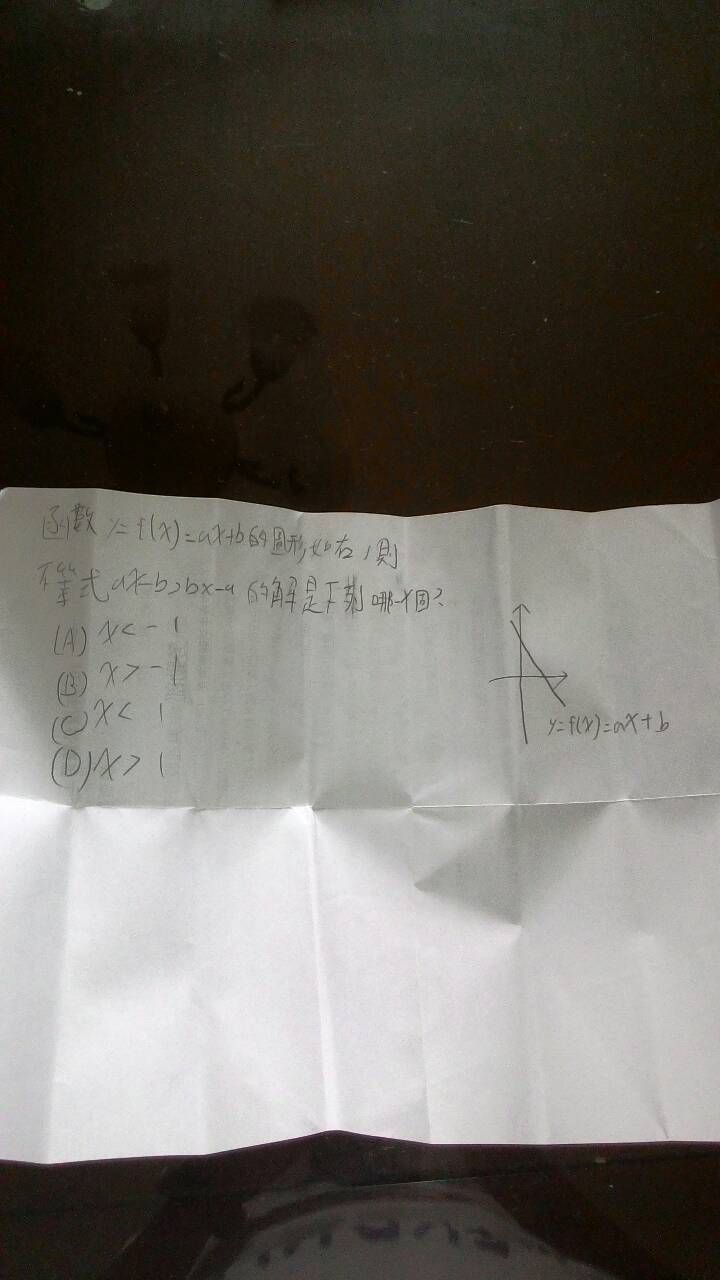 函數 y=f(x)=ax+b的圖形,如右,則
不等式 ax-b>bx-a 的解是下列哪一個?
(A) x<-1
(B) x>-1
(C) x<1
(D) x>1
y=f(x)=ax+b